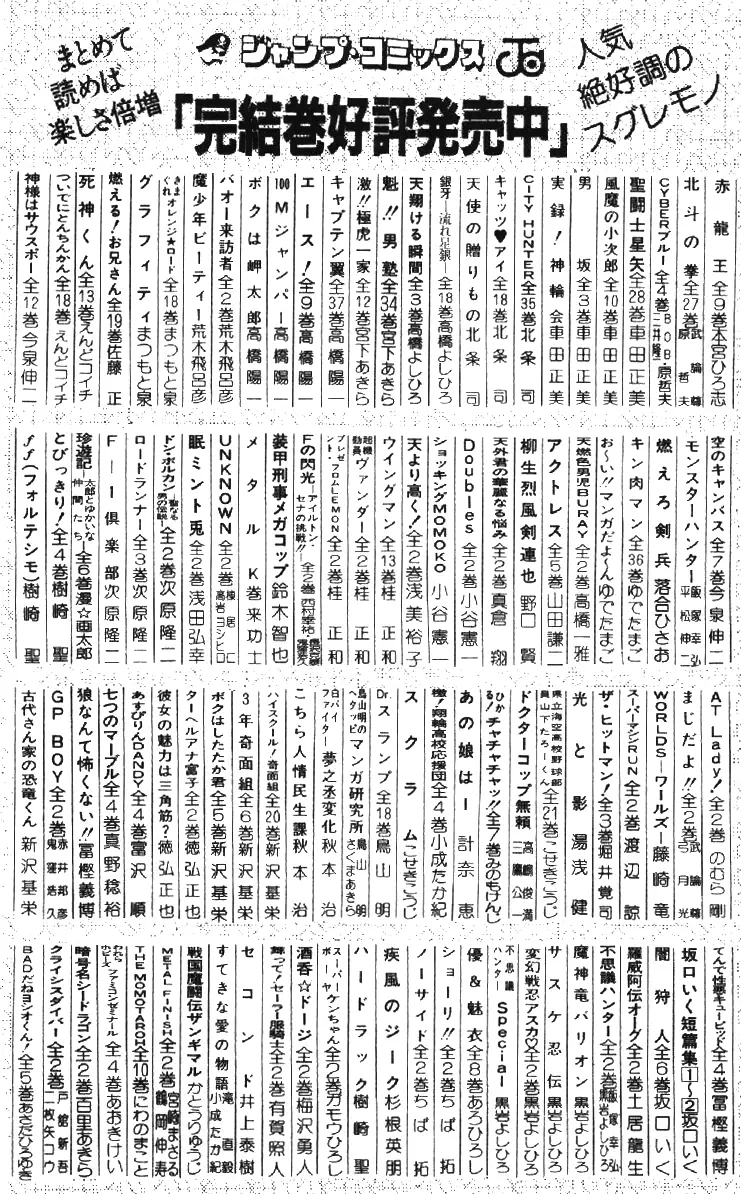 まとめて
読めば
楽しさ倍増
ジャンプ・コミックス
人気
絶好調の
スグレモノ
「完結巻好評発売中」
赤龍王 全9巻 本宮ひろ志
北斗の拳 全27巻 武論尊 原哲夫
CYBERブルー 全4巻 BOB・原哲夫 三井隆一
聖闘士星矢 全28巻 車田正美
風魔の小次郎 全10巻 車田正美
男坂 全3巻 車田正美
実録!神輪会 車田正美
CITY HUNTER 全35巻 北条司
キャッツ♥アイ 全18巻 北条司
天使の贈りもの 北条司
銀牙―流れ星銀― 全18巻 高橋よしひろ
天翔ける瞬間 全3巻 高橋よしひろ
魁!!男塾 全34巻 宮下あきら
激!!極虎一家 全12巻 宮下あきら
キャプテン翼 全37巻 高橋陽一
エース! 全9巻 高橋陽一
100Mジャンパー 高橋陽一
ボクは岬太郎 高橋陽一
バオー来訪者 全2巻 荒木飛呂彦
魔少年ビーティー 荒木飛呂彦
きまぐれオレンジ★ロード 全18巻 まつもと泉
グラフィティ まつもと泉
燃える!お兄さん 全19巻 佐藤正
死神くん 全13巻 えんどコイチ
ついでにとんちんかん 全18巻 えんどコイチ
神様はサウスポー 全12巻 今泉伸二
空のキャンバス 全7巻 今泉伸二
モンスターハンター 飯塚幸弘 平松伸二
燃えろ剣兵 落合ひさお
キン肉マン 全36巻 ゆでたまご
お〜い!マンガだよ〜ん ゆでたまご
天燃色男児BURAY 全2巻 高橋一雅
アクトレス 全5巻 山田謙二
柳生烈風剣連也 野口賢
天外君の華麗なる悩み 全2巻 真倉翔
Doubles 全2巻 小谷憲一
ショッキングMOMOKO 小谷憲一
天より高く! 全2巻 浅美裕子
ウイングマン 全13巻 桂正和
超機動員ヴァンダー 全2巻 桂正和
プレゼント・フロムLEMON 全2巻 桂正和
Fの閃光―アイルトン・セナの挑戦!!― 全2巻 西村幸祐
装甲刑事メガコップ 鈴木智也
メタルK 巻来功士
UNKNOWN 全2巻 高岩ヨシヒロ
眠ミント兎 全2巻 浅田弘幸
ドン・ボルカン―聖なる男の伝説― 全2巻 次原隆二
ロードランナー 全3巻 次原隆二
F―1倶楽部 次原隆二
珍遊記―太郎とゆかいな仲間たち― 全6巻 漫☆画太郎
とびっきり! 全4巻 樹崎聖
ff(フォルテシモ) 樹崎聖
AT Lady! 全2巻 のむら剛
まじだよ!! 全2巻 武論尊 弓月光
WORLDS―ワールズ― 藤崎竜
スーパーマシンRUN 全2巻 渡辺諒
ザ・ヒットマン! 全3巻 堀井覚司
光と影 湯浅健
県立海空高校野球部員山下たろーくん 全21巻 こせきこうじ
ドクターコップ無頼 高嶋俊満 三鷹公一
ひかる!チャチャチャッ!! 全7巻 みのもけんじ
あの娘はー 計奈恵
檄!!翔輪高校応援団 全4巻 小成たか紀
スクラム こせきこうじ
Dr.スランプ 全18巻 鳥山明
鳥山明のヘタッピマンガ研究所 鳥山明 さくまあきら
白バイファイター夢之丞変化 秋本治
こちら人情民生課 秋本治
ハイスクール!奇面組 全20巻 新沢基栄
3年奇面組 全6巻 新沢基栄
ボクはしたたか君 全5巻 新沢基栄
ターヘルアナ富子 全2巻 徳弘正也
彼女の魅力は三角筋? 徳弘正也
あすぴりんDANDY 全4巻 富沢順
七つのマーブル 全4巻 真野稔裕
狼なんて怖くない!! 富樫義博
GP BOY 全2巻 赤井邦彦 鬼窪浩久
古代さん家の恐竜くん 新沢基栄
てんで性悪キューピッド 全4巻 冨樫義博
坂口いく短篇集1〜2 坂口いく
闇狩人 全6巻 坂口いく
羅威阿伝オーグ 全2巻 土居龍生
不思議ハンター 全2巻 飯塚幸弘 黒岩よしひろ
魔神竜バリオン 黒岩よしひろ
サスケ忍伝 黒岩よしひろ
変幻戦忍アスカ♡ 全2巻 黒岩よしひろ
不思議ハンターSpecial 黒岩よしひろ
優&魅衣 全8巻 あろひろし
ショーリ!! 全2巻 ちば拓
ノーサイド 全2巻 ちば拓
疾風のジーク 杉根英朋
ハードラック 樹崎聖
スーパーボーヤーケンちゃん 全2巻 ガモウひろし
酒呑☆ドージ 全2巻 梅沢勇人
舞って!セーラー服騎士 全2巻 有賀照人
セコンド 井上泰樹
すてきな愛の物語 滝直毅 小成たか紀
戦国魔闘伝ザンギマル かとうりゅうじ
METAL FINISH 全2巻 宮崎まさる 鶴岡伸寿
THE MOMOTAROH 全10巻 にわのまこと
わたるホビーズファミコンゼミナール 全4巻 あおきけい
暗号名シードラゴン 全2巻 百里あきら
クライシスダイバー 全2巻 戸舘新吾 二枚矢コウ
BADだねヨシオくん! 全5巻 あさだひろゆき